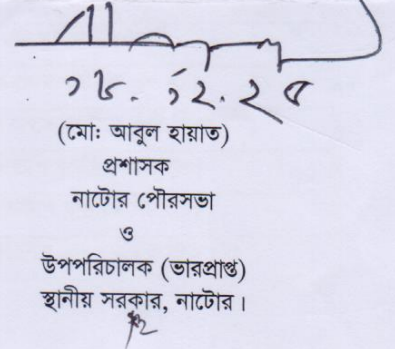 ১৮.১২.২৫
(মোঃ আবুল হায়াত)
প্রশাসক
নাটোর পৌরসভা
ও
উপপরিচালক (ভারপ্রাপ্ত)
স্থানীয় সরকার, নাটোর।